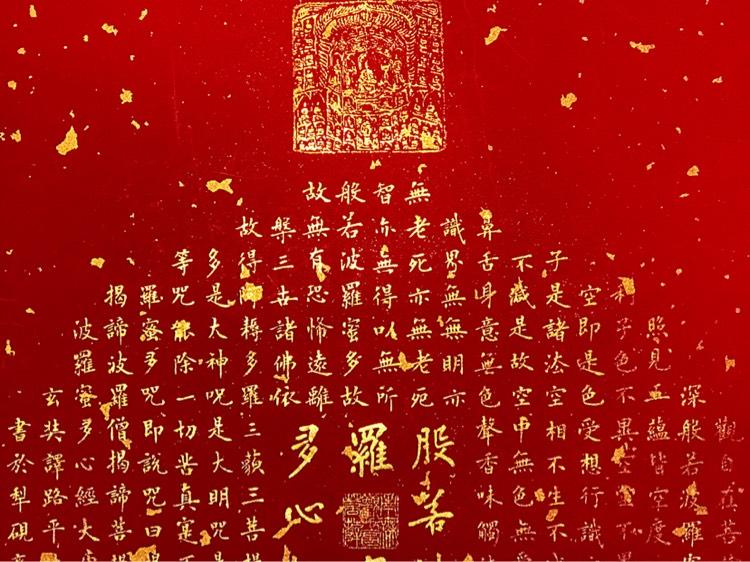 觀自在菩
深般若波羅蜜
照見五蘊皆空度
利子色不異空空不異
空即是色受想行識
子是諸法空相不生不
不滅是故空中無色無
鼻舌身意無色聲香味觸
識界無無明亦
無老死亦無老死
智亦無得以無所
般若波羅蜜多故
故無有恐怖遠離
槃三世諸佛依
般若
羅
多心
故得阿耨多羅三藐三菩提
多是大神咒是大明咒是
等咒能除一切苦真實不
羅蜜多咒即說咒曰揭
揭諦波羅僧揭諦菩提
波羅蜜多心經大唐
玄奘譯路平
書於犁硯齋